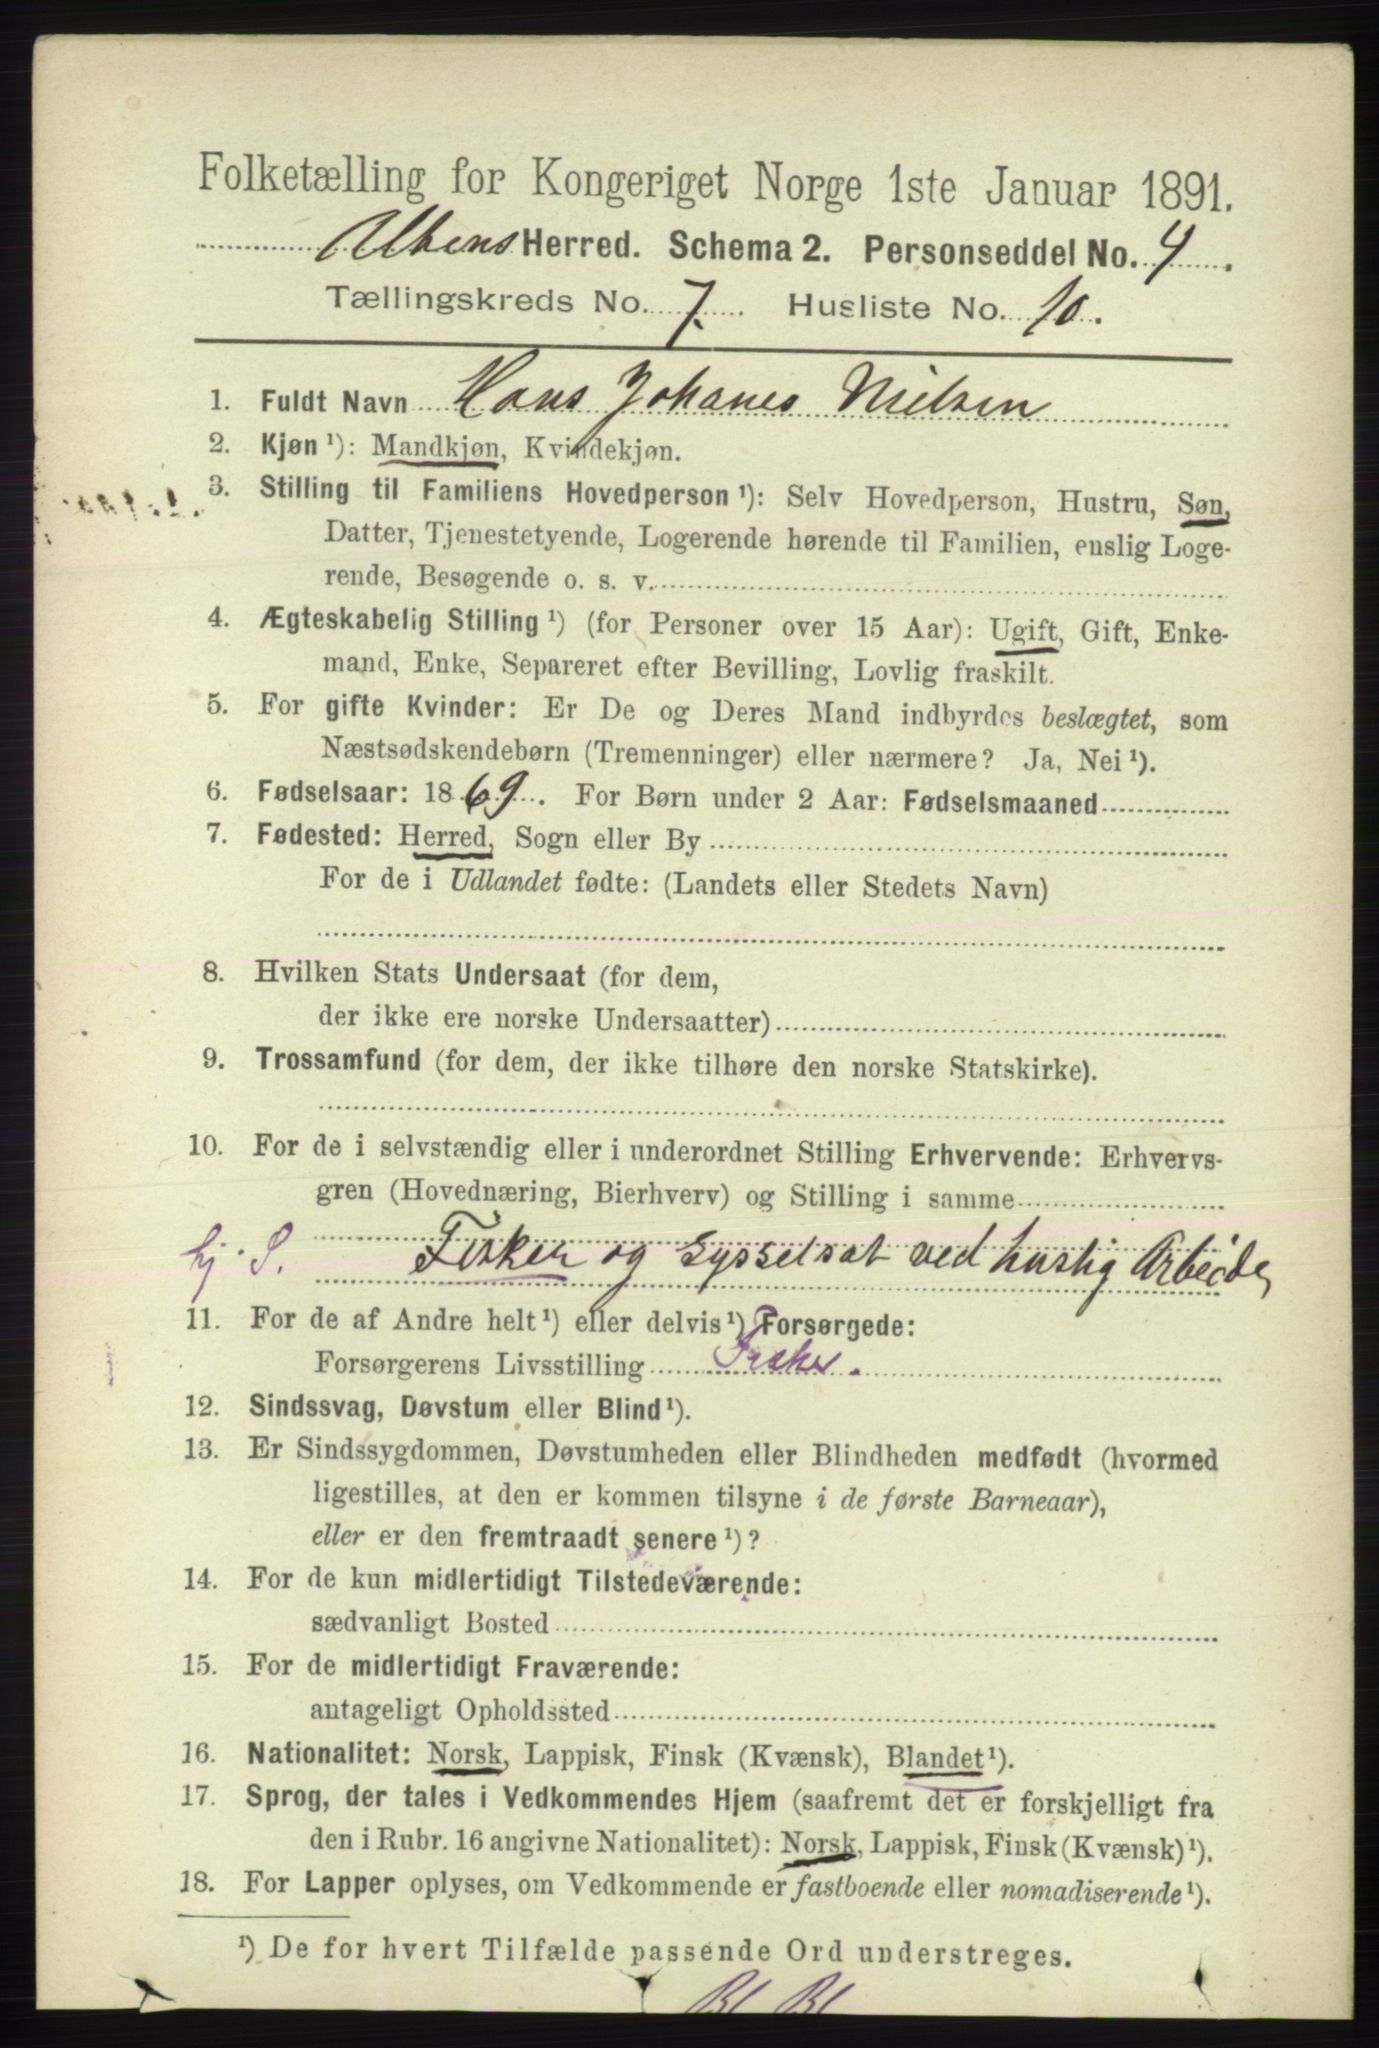 Folketælling for Kongeriget Norge 1ste Januar 1891.
Altens Herred. Schema 2. Personseddel No. 4
Tællingskreds No. 7. Husliste No. 10.
1. Fuldt Navn Hans Johanes Nielsen
2. Kjøn ¹): Mandkjøn, Kvindekjøn.
3. Stilling til Familiens Hovedperson ¹): Selv Hovedperson, Hustru, Søn,
Datter, Tjenestetyende, Logerende hørende til Familien, enslig Loge-
rende, Besøgende o. s. v.
4. Ægteskabelig Stilling ¹) (for Personer over 15 Aar): Ugift, Gift, Enke-
mand, Enke, Separeret efter Bevilling, Lovlig fraskilt.
5. For gifte Kvinder: Er De og Deres Mand indbyrdes beslægtet, som
Næstsødskendebørn (Tremenninger) eller nærmere? Ja, Nei ¹).
6. Fødselsaar: 1869. For Børn under 2 Aar: Fødselsmaaned
7. Fødested: Herred, Sogn eller By
For de i Udlandet fødte: (Landets eller Stedets Navn)
8. Hvilken Stats Undersaat (for dem,
der ikke ere norske Undersaatter)
9. Trossamfund (for dem, der ikke tilhøre den norske Statskirke).
10. For de i selvstændig eller i underordnet Stilling Erhvervende: Erhvervs-
gren (Hovednæring, Bierhverv) og Stilling i samme
hj. S. Fisker og sysselsat ved huslig Arbeide,
11. For de af Andre helt ¹) eller delvis ¹) Forsørgede:
Forsørgerens Livsstilling Fisker.
12. Sindssvag, Døvstum eller Blind ¹).
13. Er Sindssygdommen, Døvstumheden eller Blindheden medfødt (hvormed
ligestilles, at den er kommen tilsyne i de første Barneaar),
eller er den fremtraadt senere ¹)?
14. For de kun midlertidigt Tilstedeværende:
sædvanligt Bosted
15. For de midlertidigt Fraværende:
antageligt Opholdssted
16. Nationalitet: Norsk, Lappisk, Finsk (Kvænsk), Blandet ¹).
17. Sprog, der tales i Vedkommendes Hjem (saafremt det er forskjelligt fra
den i Rubr. 16 angivne Nationalitet): Norsk, Lappisk, Finsk (Kvænsk) ¹).
18. For Lapper oplyses, om Vedkommende er fastboende eller nomadiserende ¹).
¹) De for hvert Tilfælde passende Ord understreges.
Bl Bl